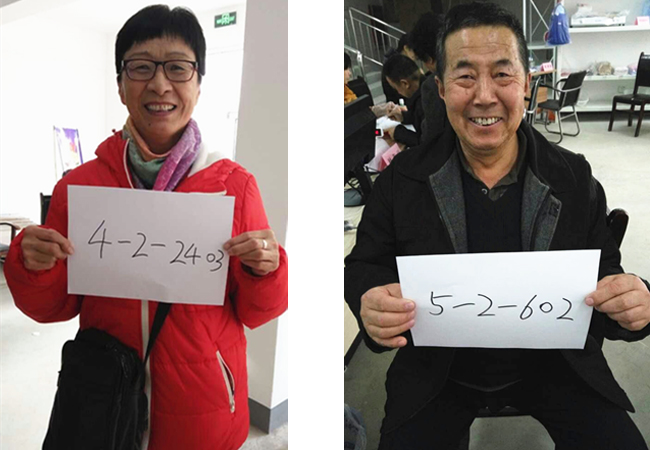 4-2-2403
5-2-602